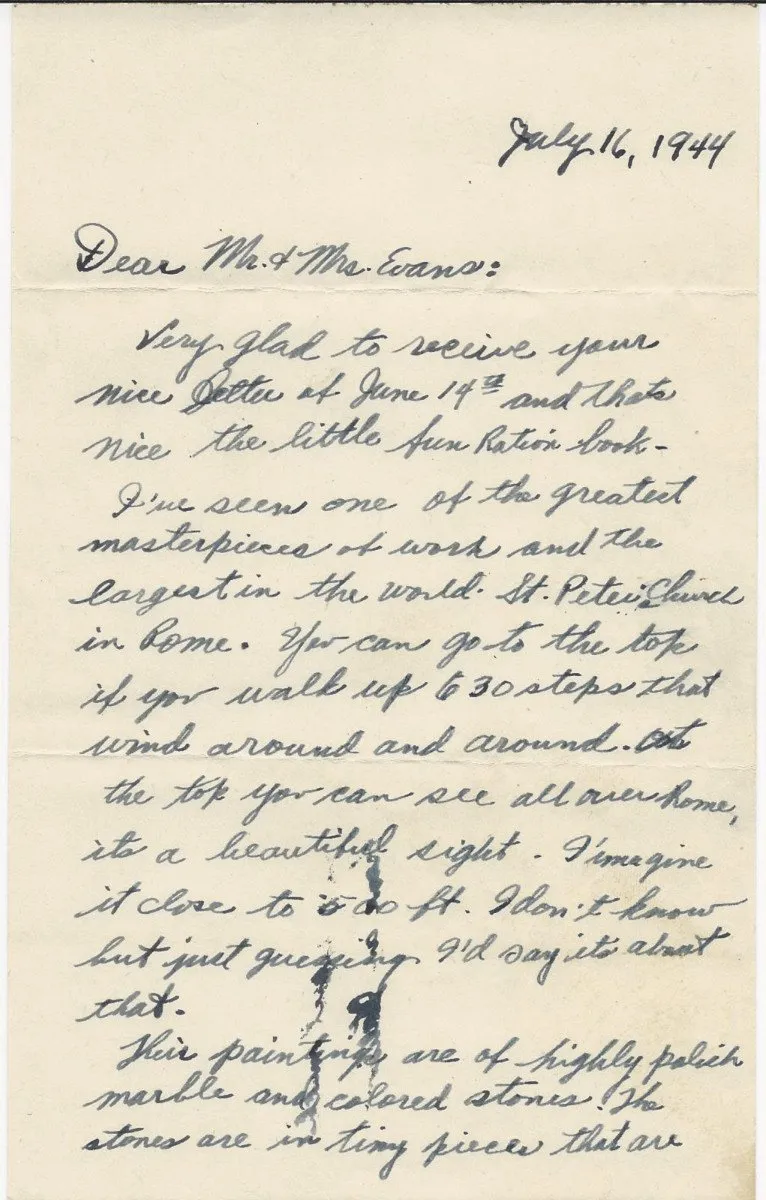 July 16, 1944
Dear Mr. & Mrs. Evans:
Very glad to receive your
nice letter of June 14th and thats
nice the little fun Ration book-
I've seen one of the greatest
masterpieces of work and the
largest in the world. St. Peter's Church
in Rome. You can go to the top
if you walk up 630 steps that
wind around and around. At
the top you can see all over Rome,
its a beautiful sight. I imagine
it close to 500 ft. I don't know
but just guessing I'd say its about
that.
Their paintings are of highly polish
marble and colored stones. The
stones are in tiny pieces that are